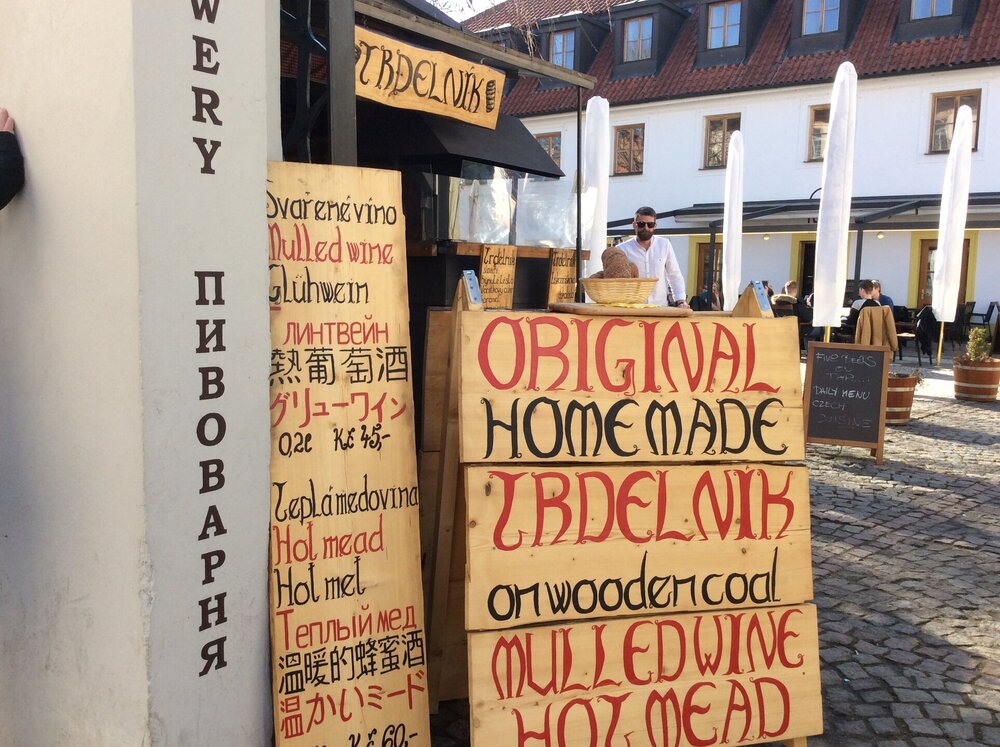 WERY
ПИВОВАРНЯ
TRDELNÍK
Svařené víno
Mulled wine
Glühwein
ЛИНТВЕЙН
熱葡萄酒
グリューワイン
0,2l Kč 45,-
Teplá medovina
Hot mead
Hot met
Теплый мед
温暖的蜂蜜酒
温かいミード
Kč 60,-
Trdelník
Trdelník
ORIGINAL
HOMEMADE
TRDELNÍK
on wooden coal
MULLED WINE
HOT MEAD
FIVE BEERS
ON
TAP...
DAILY MENU
CZECH
CUISINE